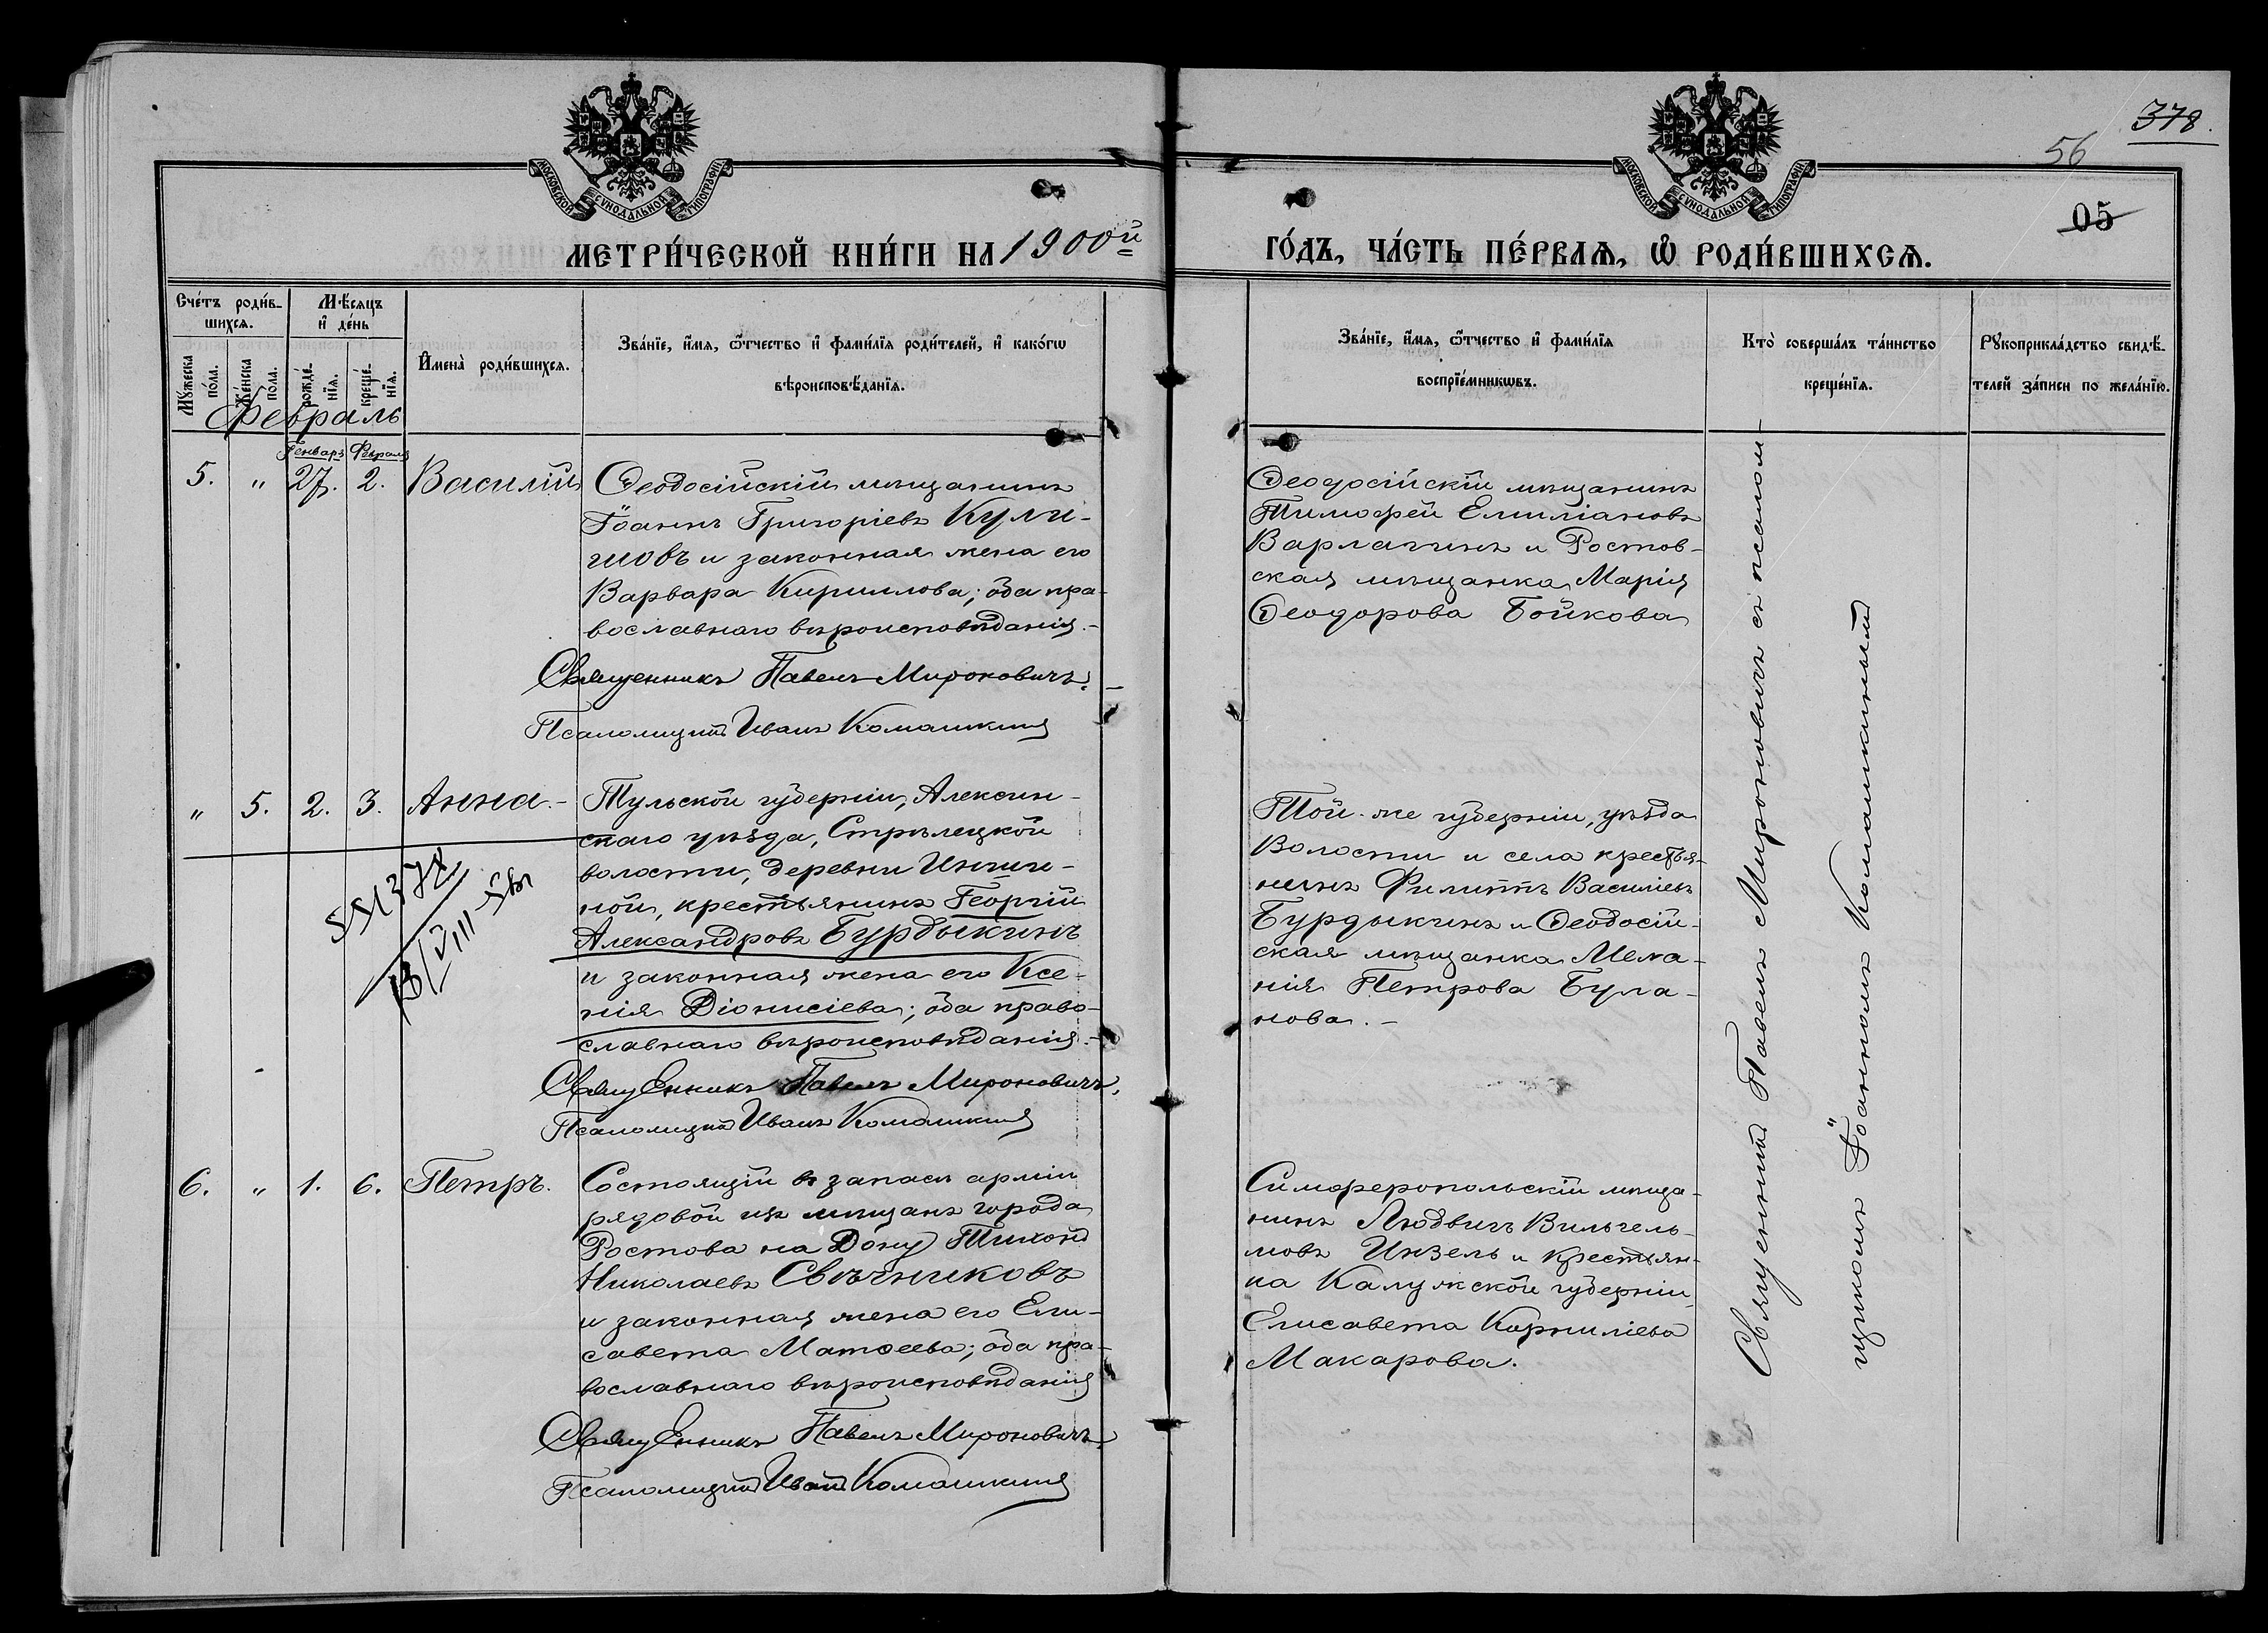 378.
56
05
МОСКОВСКОЙ СѴНОДАЛЬНОЙ ТИПОГРАФІИ
МОСКОВСКОЙ СѴНОДАЛЬНОЙ ТИПОГРАФІИ
МЕТРИ́ЧЕСКОЙ КНИ́ГИ НА 1900й
ГО́ДЪ, ЧА́СТЬ ПЕ́РВАѦ, Ѡ РОДИ́ВШИХСѦ.
Сче́тъ роди́в-
шихсѧ.
Мѣ́сѧцъ
и҆ де́нь
Мꙋ́жеска по́ла.
Же́нска пола.
рожде́-
нїѧ.
креще́-
нїѧ.
И҆мена̀ роди́вшихсѧ.
Зва́нїе, и҆́мѧ, ѻ҆́тчество и҆ фами́лїѧ роди́телей, и҆ како́гѡ
вѣроисповѣ́данїѧ.
Зва́нїе, и҆́мѧ, ѻ҆́тчество и҆ фами́лїѧ
воспрїе́мникѡвъ.
Кто̀ соверша́лъ та́инство
креще́нїѧ.
Рꙋкоприкла́дство свидѣ́-
телей за́писи по жела́нїю.
Февраль
Генварь Февраля
5. " 27. 2. Василій
Ѳеодосійскій мѣщанинъ
Іоаннъ Григоріевъ Кули-
шовъ и законная жена его
Варвара Кириллова; оба пра-
вославнаго вѣроисповѣданія.-
Священникъ Павелъ Мироновичъ.
Псаломщикъ Иванъ Комашкинъ
Ѳеодосійскій мѣщанинъ
Тимофей Емиліановъ
Варлагинъ и Ростов-
ская мѣщанка Марія
Ѳеодорова Бойкова
" 5. 2. 3. Анна.-
Тульской губерніи, Алексин-
скаго уѣзда, Стрѣлецкой
волости, деревни Иншин-
ной, крестьянинъ Георгій
Александровъ Бурдыкинъ
и законная жена его Ксе-
нія Діонисіева; оба право-
славнаго вѣроисповѣданія.-
Священникъ Павелъ Мироновичъ,
Псаломщикъ Иванъ Комашкинъ
Той-же губерніи, уѣзда
Волости и села крестья-
нинъ Филиппъ Василіевъ
Бурдыкинъ и Ѳеодосій-
ская мѣщанка Мела-
нія Петрова Була-
нова.-
6. " 1. 6. Петръ.
Состоящій въ запасѣ арміи
рядовой изъ мѣщанъ города
Ростова на Дону Тихонъ
Николаевъ Свѣчниковъ
и законная жена его Ели-
савета Матѳеева; оба пра-
вославнаго вѣроисповѣданія
Священникъ Павелъ Мироновичъ.
Псаломщикъ Иванъ Комашкинъ
Симферопольскій мѣща-
нинъ Людвигъ Вильгель-
мовъ Инзель и крестьян-
ка Калужской губерніи,
Елисавета Корниліева
Макарова.
Священникъ Павелъ Мироновичъ съ псалом-
щикомъ Іоанномъ Комашкинымъ